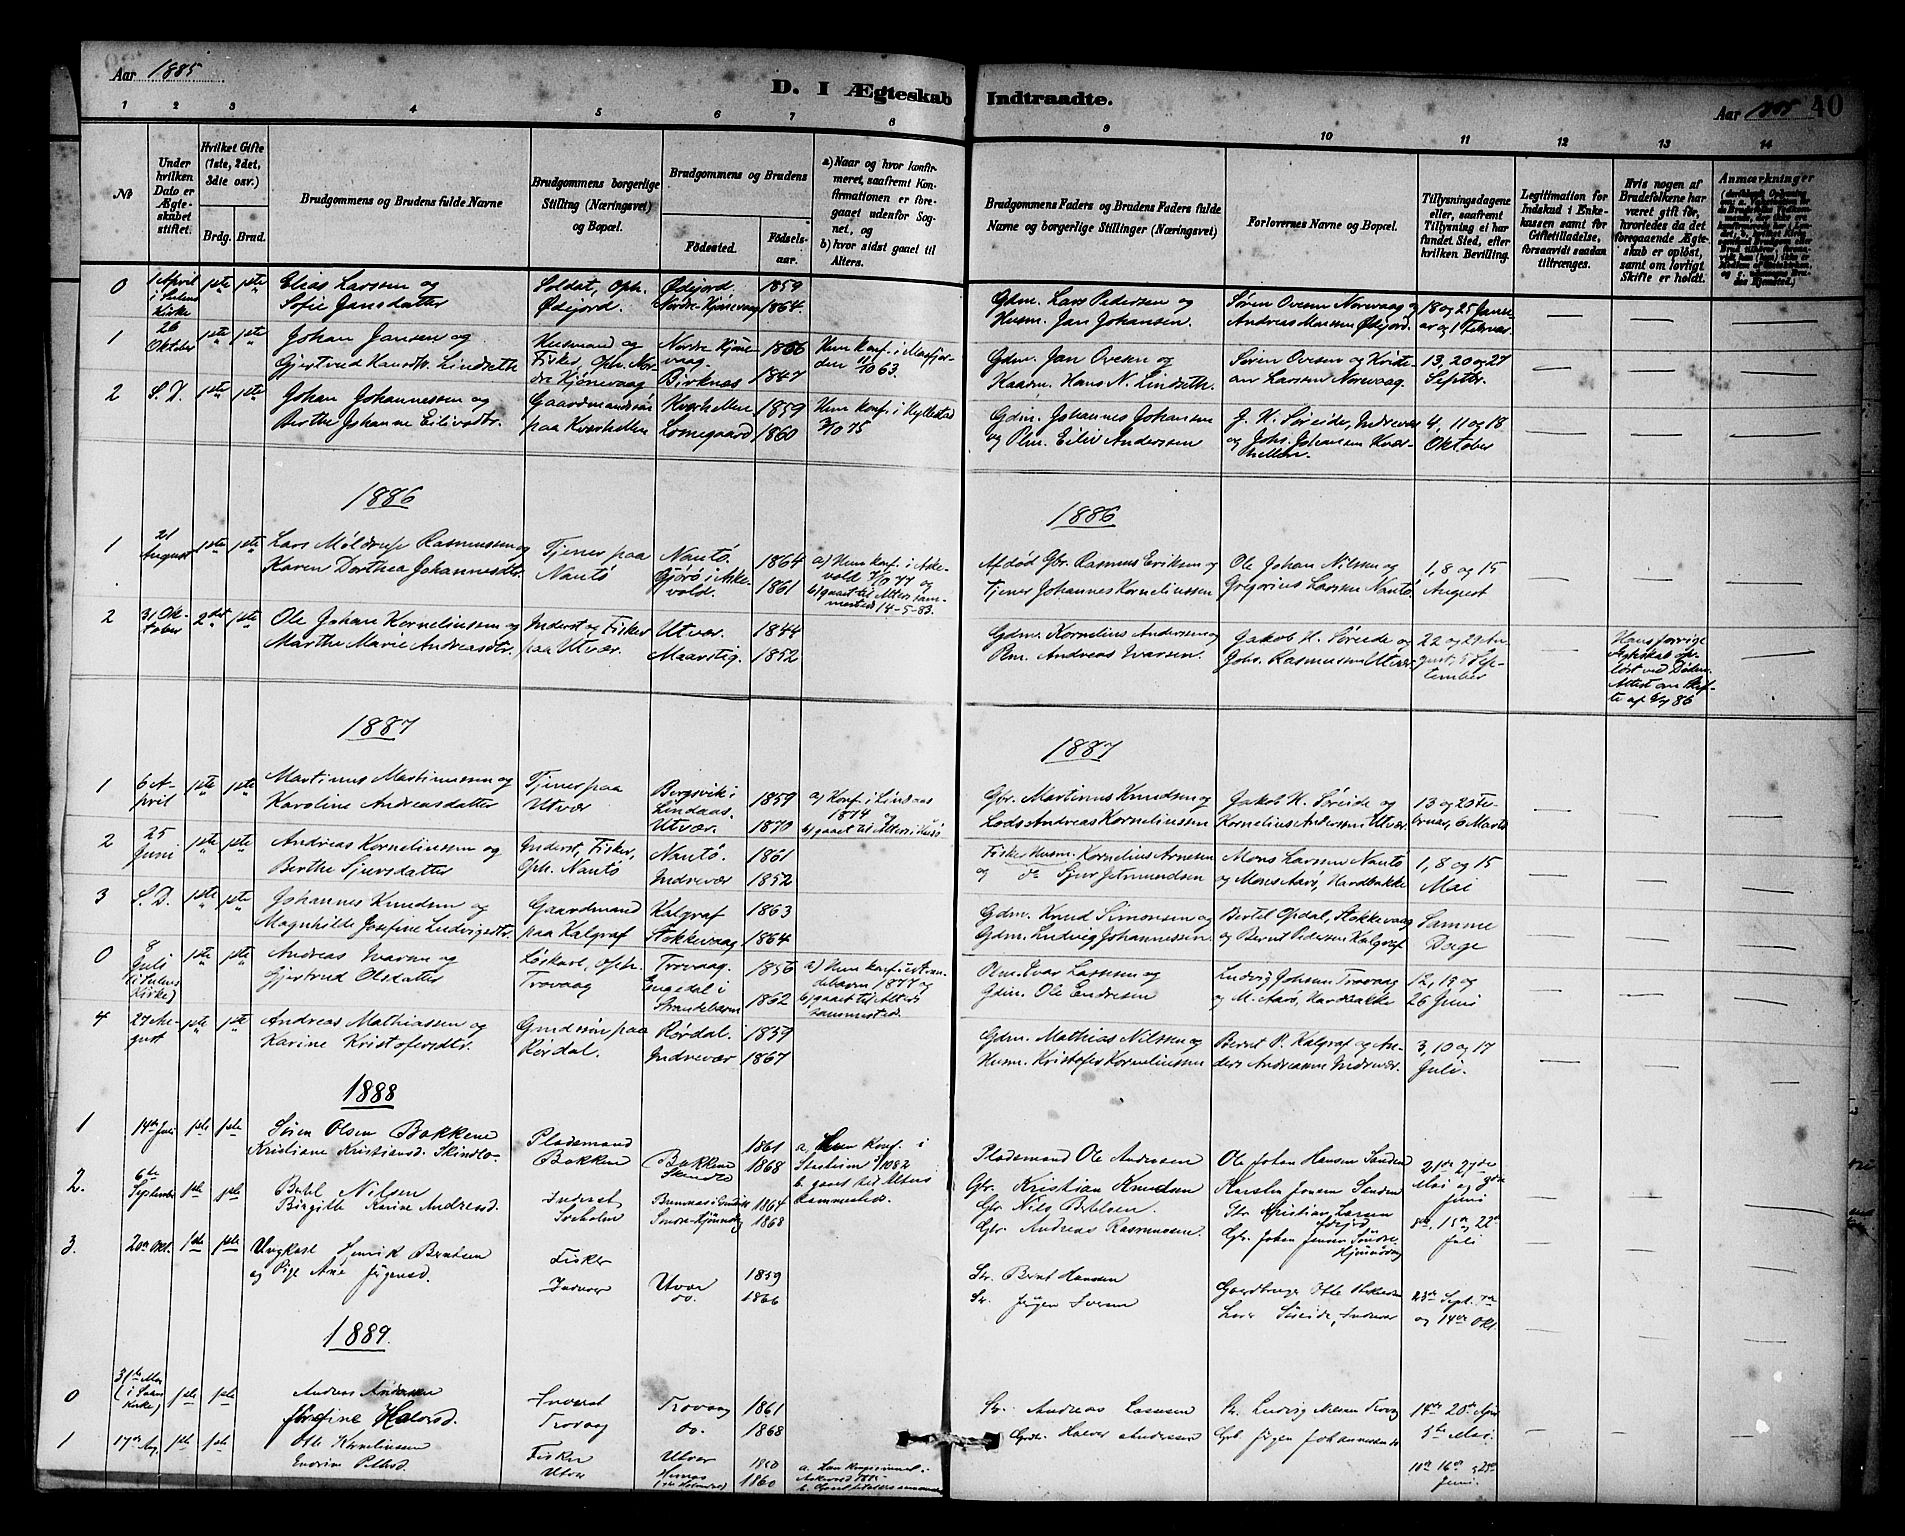 Aar 1885
D. I Ægteskab Indtraadte.
Aar 1885 40
1 2 3 4 5 6 7 8 9 10 11 12 13 14
№
Under hvilken Dato er Ægteskabet stiftet.
Hvilket Gifte (1ste, 2det, 3die osv.)
Brdg. Brud.
Brudgommens og Brudens fulde Navne
Brudgommens borgerlige Stilling (Næringsvei) og Bopæl.
Brudgommens og Brudens
Fødested. Fødselsaar.
a) Naar og hvor konfirmeret, saafremt Konfirmationen er foregaaet udenfor Sognet, og
b) hvor sidst gaaet til Alters.
Brudgommens Faders og Brudens Faders fulde Navne og borgerlige Stillinger (Næringsvei)
Forlovernes Navne og Bopæl.
Tillysningsdagene eller, saafremt Tillysning ei har fundet Sted, efter hvilken Bevilling.
Legitimation for Indskud i Enkekassen samt for Giftetilladelse, forsaavidt saadan tiltrænges.
Hvis nogen af Brudefolkene har været gift før, hvorledes da det foregaaende Ægteskab er opløst, samt om lovligt Skifte er holdt.
Anmærkninger
0 1 April i Sulens Kirke 1ste 1ste Elias Larssen og Sofie Jansdatter Soldat, Oph. Ødejord. Ødejord. 1859 Nordre Kjønevaag 1864 Gdm. Lars Pedersen og Husm. Jan Johansen. Søren Ovesen Norevaag og Andreas Monssen Ødejord. 18 og 25 Januar og 1 Februar.
1 26 Oktober 1ste 1ste Johan Jansen og Gjertrud Hansdtr. Lindseth Husmand og Fisker, Oph. Nordre Kjønevaag Nordre Kjønevaag 1866 Birknes 1847 Hun konf. i Masfjorden 11/10 63. Gdm. Jan Ovesen og Kaarm. Hans N. Lindseth. Søren Ovesen og Larssen Norevaag. 13, 20 og 27 Septbr.
2 S. D. 1ste 1ste Johan Johannessen og Berthe Johanne Eilivsdtr. Gaardmandssøn paa Kværhellen Kværhellen 1859 Losnegaard 1860 Hun konf. i Hyllestad 3/10 75 Gdm. Johannes Johansen og Plm. Eiliv Anderssen J. H. Søreide, Indrevær og Johs. Johansen Kværhellen. 4, 11 og 18 Oktober
1886 1886
1 21 August 1ste 1ste Lars Møldrup Rasmussen og Karen Dorthea Johannesdtr. Tjener paa Nautø Nautø. 1864 Gjørø i Askevold. 1861 a) Hun konf. i Askevold 7/10 77 og b) gaaet til Alters sammesteds 14-5-83. Afdød Gbr. Rasmus Eriksen og Tjener Johannes Korneliussen Ole Johan Nilsen og Gregorius Larssen Nautø. 1, 8 og 15 August
2 31 Oktober 2det 1ste Ole Johan Korneliussen og Marthe Marie Andreasdtr. Inderst og Fisker paa Utvær. Utvær. 1844 Maarstig. 1852 Gdm. Kornelius Andersen og Plm. Andreas Ivarsen. Jakob H. Søreide og Johs. Rasmussen Utvær 22 og 29 August, 5 September Hans forrige Ægteskab opløst ved Døden. Attest om Skifte af 86
1887 1887
1 6 April 1ste 1ste Martinus Martinussen og Karoline Andreasdatter Tjener paa Utvær Bergsvik i Lindaas. 1859 Utvær. 1870 a) Konf. i Lindaas 1874 og b) gaaet til Alters i Husø Gbr. Martinus Knudsen og Lods Andreas Korneliussen Jakob H. Søreide og Kornelius Andersen Utvær. 13 og 20 Februar, 6 Marts
2 25 Juni 1ste 1ste Andreas Korneliussen og Berthe Sjursdatter Inderst, Fisker, Oph. Nautø Nautø. 1861 Indrevær 1852 Fisker Husm. Kornelius Arnesen og do Sjur Jetmundsen Mons Larssen Nautø og Mons Aarø, Hardbakke 1, 8 og 15 Mai
3 S. D. 1ste 1ste Johannes Knudsen og Magnhilde Josefine Ludvigsdtr. Gaardmand paa Kalgraf Kalgraf 1863 Stokkevaag 1864 Gdm. Knud Simonsen og Gdm. Ludvig Johannessen. Bertel Opdal, Stokkevaag og Bernt Pedersen Kalgraf Samme Dage
0 8 Juli (i Sulens Kirke) 1ste 1ste Andreas Ivarsen og Gjertrud Olsdatter Løskarl, Oph. Trovaag Trovaag. 1856 i Strandebarm 1862 a) Hun konf. i Strandebarm 1877 og b) gaaet til Alters sammesteds. Plm. Ivar Larssen og Gdm. Ole Endresen Ludvig Johnsen Trovaag og M. Aarø, Hardbakke 12, 19 og 26 Juni
4 27 August 1ste 1ste Andreas Mathiassen og Karine Kristofersdtr. Gmdssøn paa Rørdal. Rørdal. 1859 Indrevær 1867 Gdm. Mathias Nilssen og Husm. Kristofer Korneliussen Bernt P. Kalgraf og Anders Andreassen Indrevær. 3, 10 og 17 Juli.
1888
1 14de Juli 1ste 1ste Søren Olsen Bakkene Kristiane Kristiansd. Skindlo. Pladsmand Bakken Bakkene 1861 1868 a, Hun konf. i 1882 b. gaaet til Alters sammesteds. Pladsmand Ole Andersen Gbr. Kristian Knudsen Ole Johan Hansen Sanden Karsten Jensen Sanden 21de 27de Mai og Juni
2. 6te September 1ste 1ste Nilsen Birgitte Karine Andreasd. Inderst 1864 Søndre Kjønevaag 1868 Gbr. Nils Gbr. Andreas Rasmussen. Str. Kristian Larsen Gbr. Johan Jensen Søndre Kjønevaag 8de, 15de og 22de Juli
3. 20de Okt. 1ste 1ste Ungkarl Henrik Berntsen og Pige Ane Jørgensd. Fisker Indvær Utvær 1859 do. 1866 Str. Bernt Hansen Str. Jørgen Iversen Gaardbruger Otte Lars Søreide, Indrevær 23de Sept. og 14de Okt.
1889.
0 31te Mai (i Sulens Kirke) 1ste 1ste Andreas Andersen Josefine Halvorsd. Inderst Trovaag Trovaag 1861 do. 1868 Str. Andreas Lassesen Gbr. Halvor Andersen Str. Ludvig Nilsen Trovaag Gbr. Jørgen Johannessen 14de 28de April 5te Mai.
1 17de Aug. 1ste 1ste Otte Korneliussen Pettersd. Fisker Utvær Utvær 1850 1860 16de Juni.